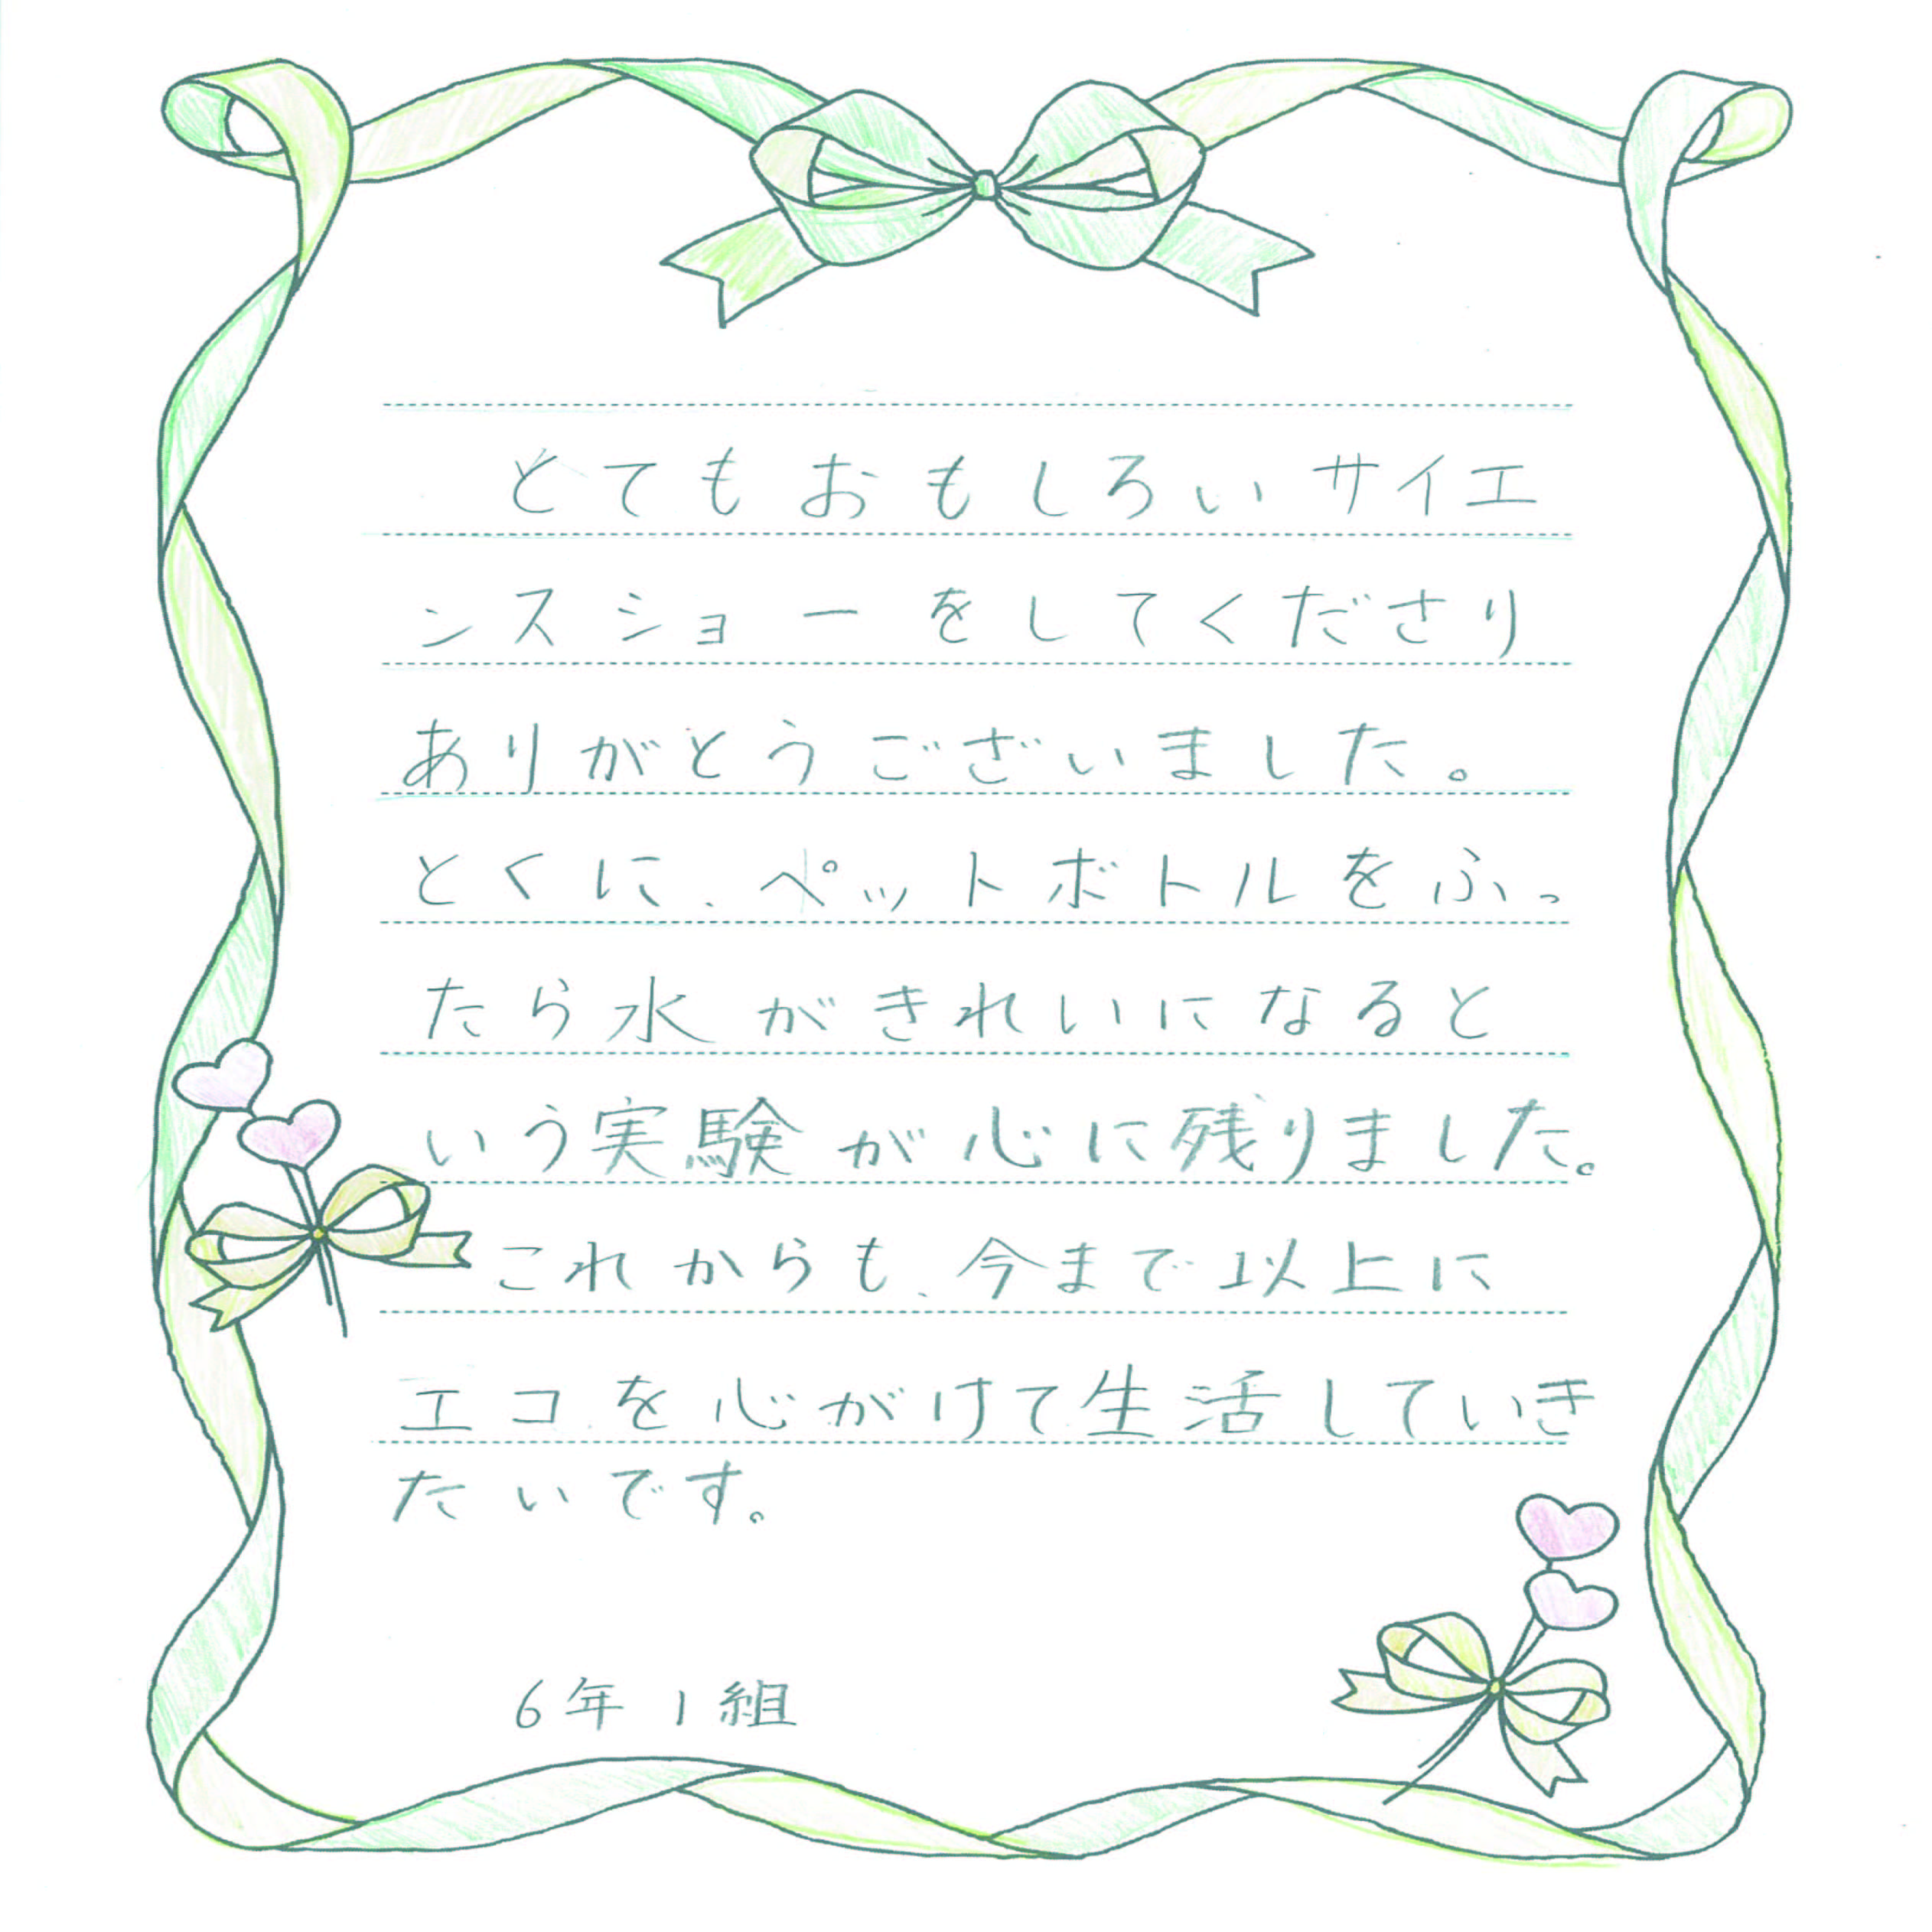 とてもおもしろいサイエ
ンスショーをしてくださり
ありがとうございました。
とくに、ペットボトルをふっ
たら水がきれいになると
いう実験が心に残りました。
これからも、今まで以上に
エコを心がけて生活していき
たいです。
6年1組